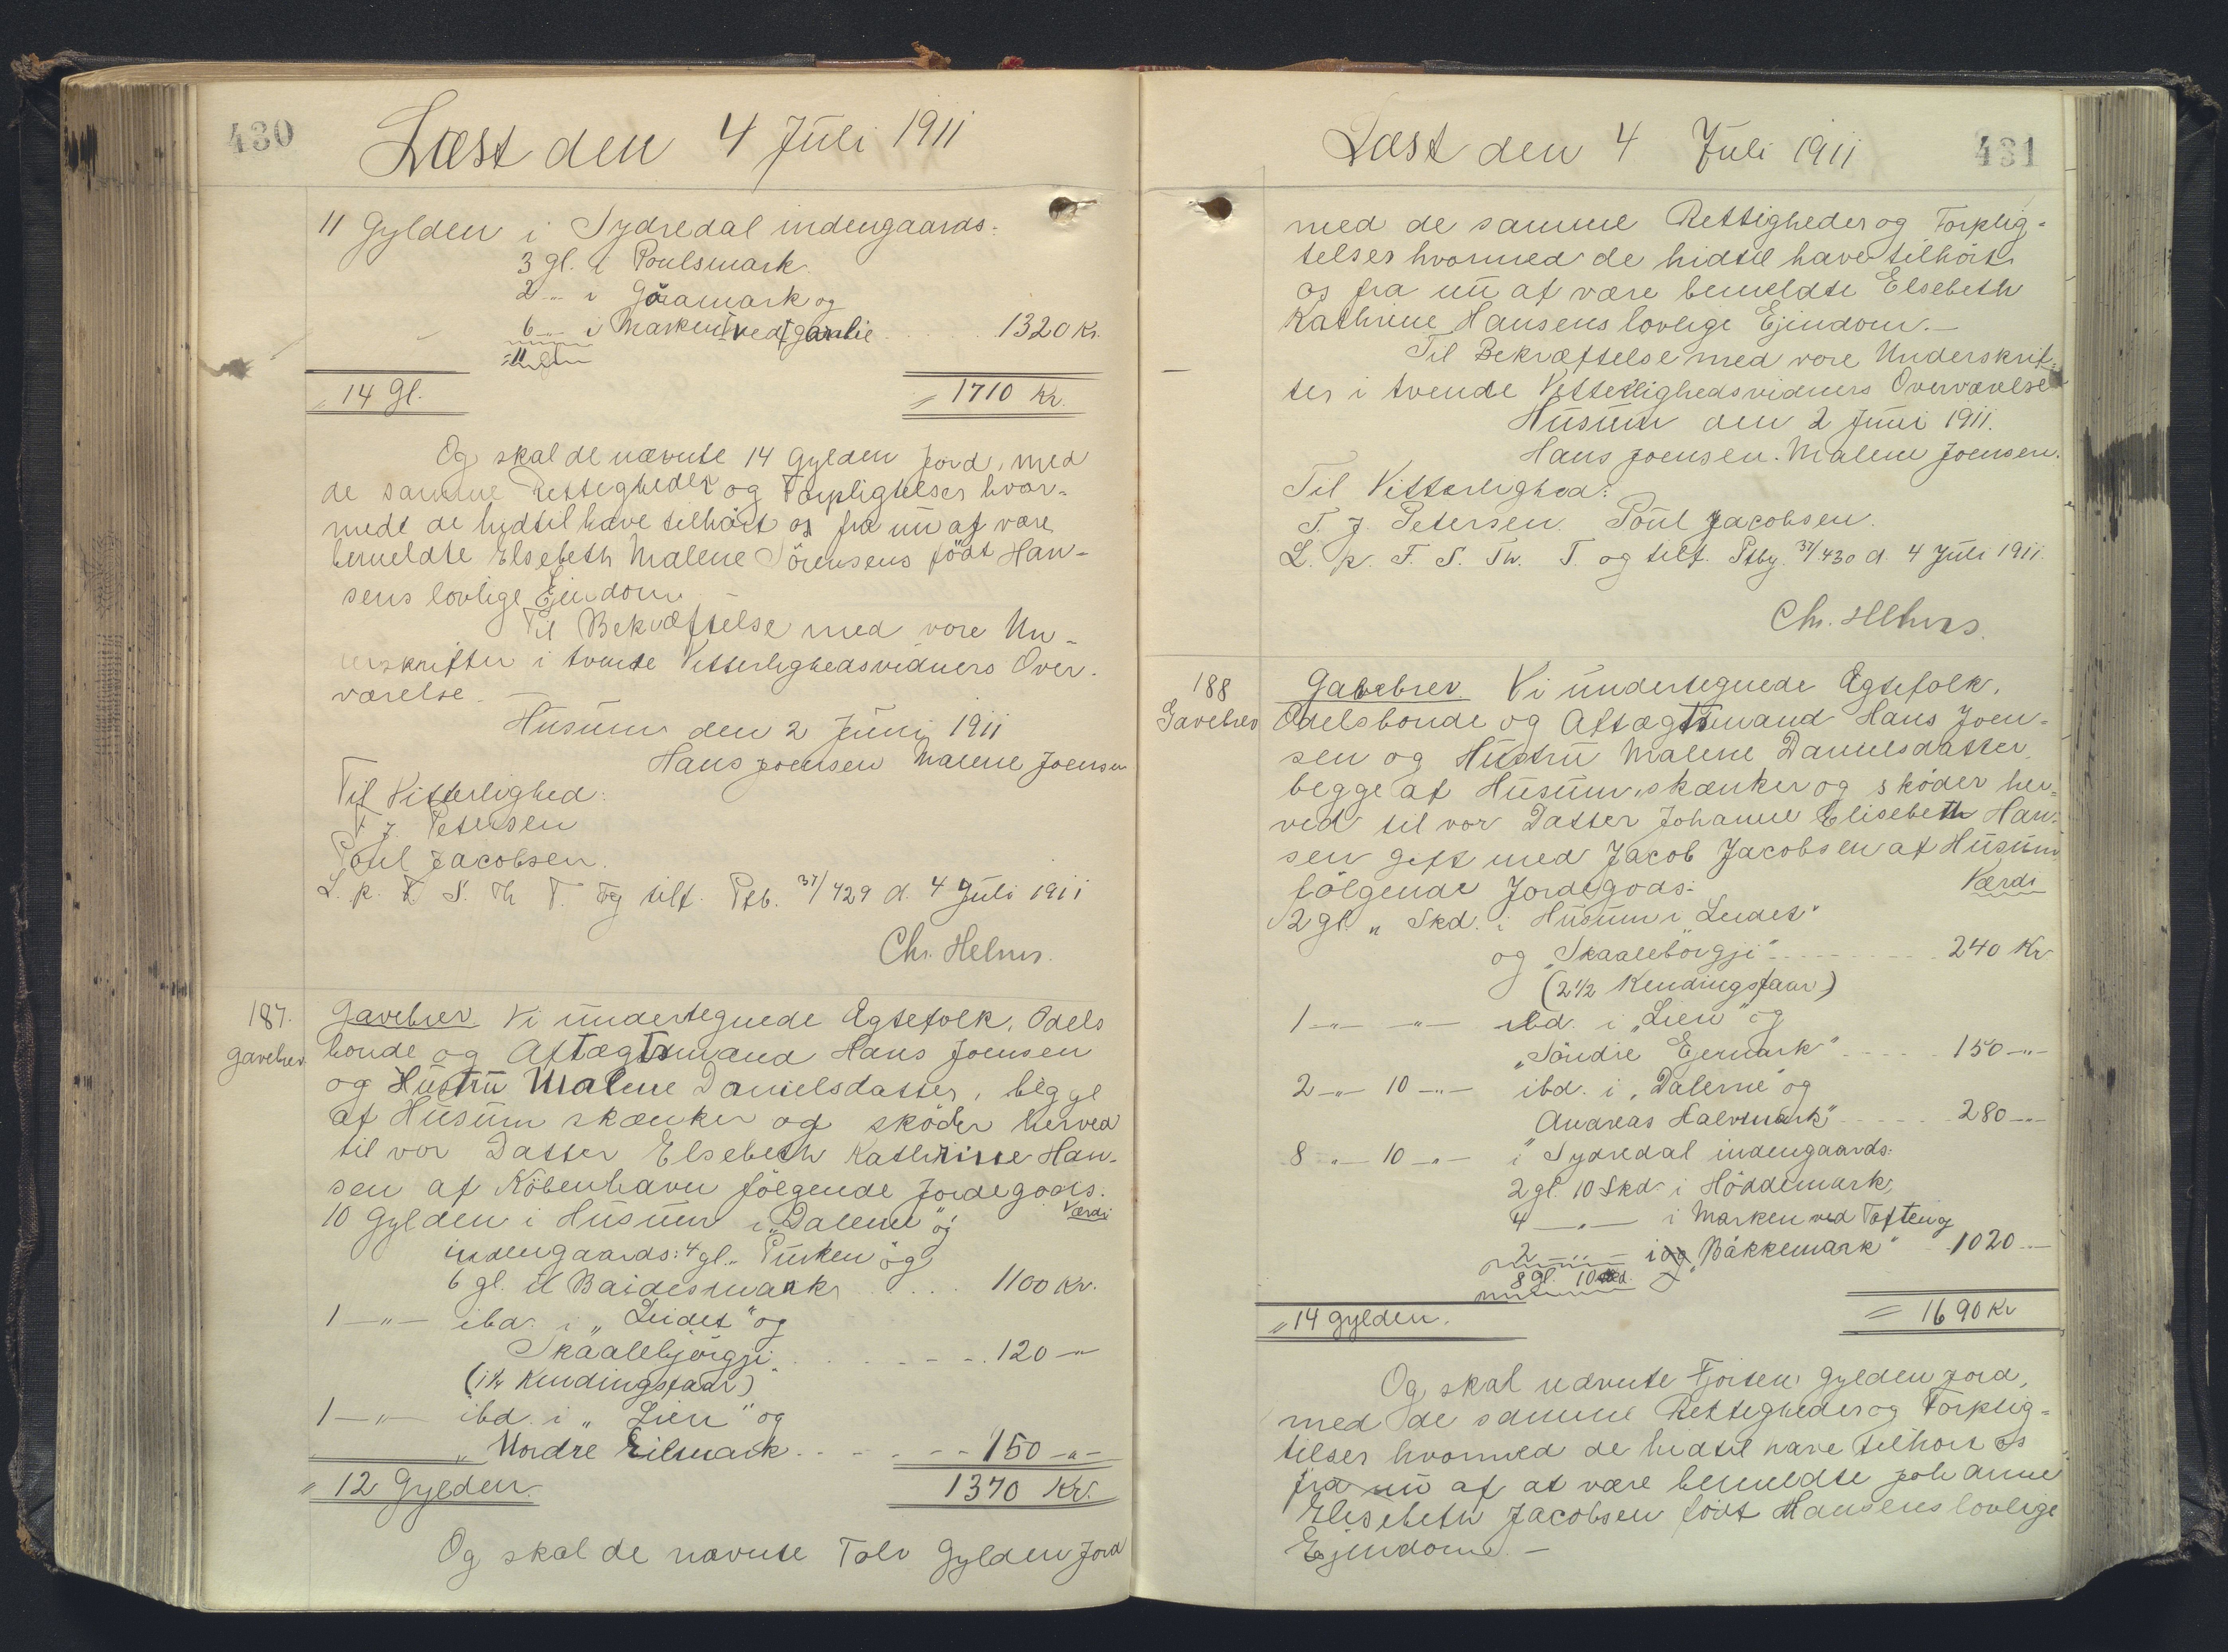 430
Læst den 4 Juli 1911
11 Gylden i Sydredal indengaards:
3 gl. i Poulsmark
2 -„- i Göramark og
6 -„- i Marken ved gamlie . . 1320 Kr.
= 11 gylden
= 14 gl. = 1710 Kr.
Og skal de nævnte 14 Gylden Jord, med
de samme Rettigheder og Forpligtelser hvor-
medt de hidtil have tilhört os fra nu af være
bemeldte Elsebeth Malene Sörensens födt Han-
sens lovlige Ejendom
Til Bekræftelse med vore Un-
derskrifter i tvende Vitterlighedsvidners Over-
værelse.
Húsum den 2 Juni 1911
Hans Joensen Malene Joensen
Til Vitterlighed:
T. J. Petersen
Poul Jacobsen.
L. p. F. S. Th. T. og tilf. Ptb. 37/429 d. 4 Juli 1911
Chr. Helms.
187. Gavebrev Vi undertegnede Egtefolk, Odels
gavebrev bonde og Aftægtsmand Hans Joensen
og Hústrú Malene Danielsdatter, begge
af Húsum skænker og sköder herved
til vor Datter Elsebeth Kathrine Han-
sen af Köbenhavn fölgende Jordegods:
10 Gylden i Husum i „Dalene" og Værdi
indengaards: 4 gl. „Purken" og
6 gl. i Baidesmark . . . . 1100 Kr.
1 -„- ibd. i „Leidet" og
Skaalebjörgji . . . . . . 120 -„-
(1¼ Kendingsfaar)
1 -„- ibd. i „Lien" og
„Nordre Eilmark . . . . . 150 -„-
= 12 Gylden. 1370 Kr.
Og skal de nævnte Tolv Gylden Jord
Læst den 4 Juli 1911
431
med de samme Rettigheder og Forplig-
telser hvormed de hidtil have tilhört
os fra nu af være bemeldte Elsebeth
Kathrine Hansens lovlige Ejendom. —
Til Bekræftelse med vore Underskrif-
ter i tvende Vitterlighedsvidners Overværelse
Húsum den 2 Juni 1911.
Hans Joensen. Malene Joensen.
Til Vitterlighed:
T. J. Petersen. Poul Jacobsen.
L. p. F. S. Th. T. og tilf. Ptbg. 37/430 d. 4 Juli 1911.
Chr. Helms.
188 Gavebrev Vi undertegnede Egtefolk,
Gavebrev Odelsbonde og Aftægtsmand Hans Joen-
sen og Hústrú Malene Danielsdatter
begge af Húsum skænker og sköder her-
ved til vor Datter Johanne Elisebeth Han-
sen gift med Jacob Jacobsen af Húsum
fölgende Jordegods: Værdi
2 gl. „ Skd. i Húsum i „Leidet"
og „Skaalebörgji" . . . . . 240 Kr
(2½ Kendingsfaar)
1 -„- -„- ibd. i „Lien" og
„Söndre Ejermark" . . . . . 150 -„-
2 -„- 10 -„- ibd. i „Dalerne" og
Andreas Halvmark" . . . . . 280 -„-
8 -„- 10 -„- i Sydredal indengaards:
2 gl. 10 Skd. i Höddemark,
4 -„- i Marken ved Tofteng
2 -„- i og „Bákkemark" 1020 -„-
8 gl. 10 Skd.
= 14 gylden. = 1690 Kr
Og skal nævnte Fjorten Gylden Jord,
med de samme Rettigheder og Forplig-
telser hvormed de hidtil have tilhört os
fra nu af at være bemeldte Johanne
Elisebeth Jacobsen födt Hansens lovlige
Ejendom. —